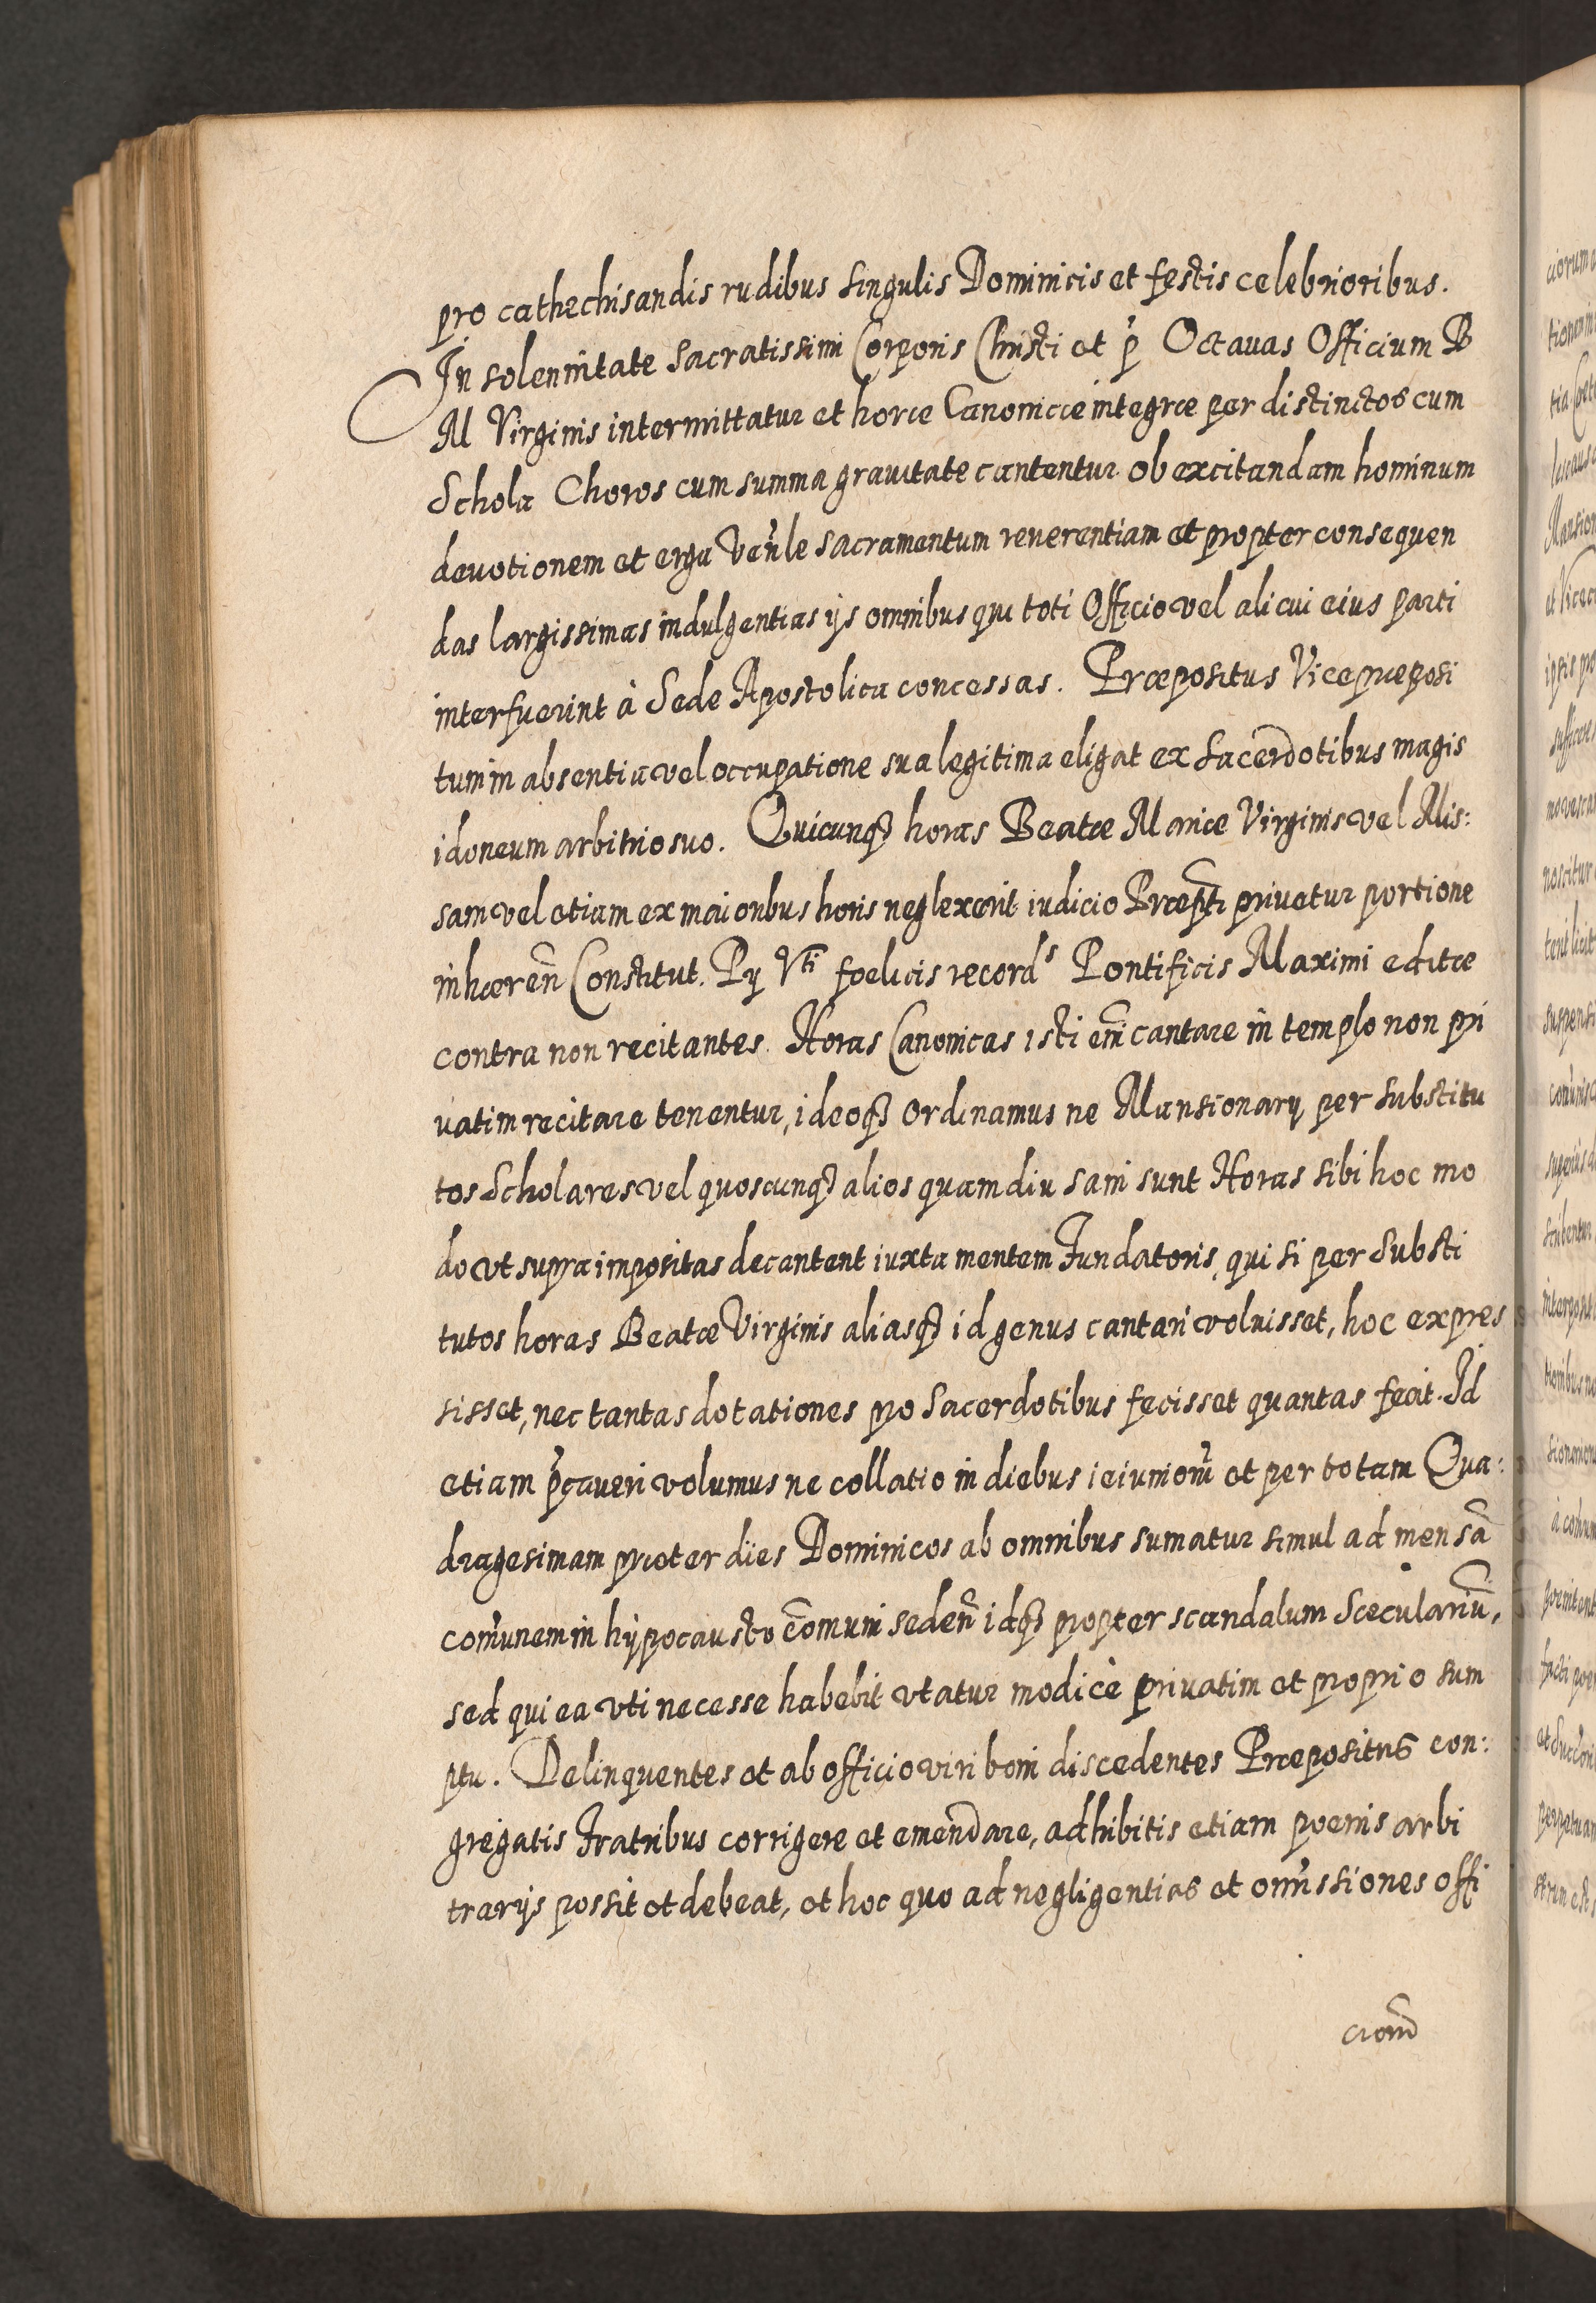 pro cathechisandis rudibus singulis Dominicis et festis celebrioribus.
In solennitate Sacratissimi Corporis Christi et p̓ Octavas Officium B
M Virginis intermittatur et horæ Canonicæ integræ per distinctos cum
Schola Choros cum summa grauitate cantentur ob excitandam hominum
deuotionem et erga Ven̓le sacramentum reuerentiam et propter consequen
das largissimas indulgentias ijs omnibus qui toti Officio vel alicui eius parti
interfuerint à Sede Apostolica concessas. Præpositus Vicepræposi
tum in absentia vel occupatione sua legitima eligat ex Sacerdotibus magis
idoneum arbitrio suo. Quicunqꝫ horas Beatæ Mariæ Virginis vel Mis:
sam vel etiam ex maioribus horis neglexerit iudicio Præpti priuetur portione
inhæren̄ Constitut. Pij Vti foelicis recordˢ Pontificis Maximi editæ
contra non recitantes. Horas Canonicas isti em̄ cantare in templo non pri
uatim recitare tenentur, ideoqꝫ ordinamus ne Mansionarij per substitu
tos Scholares vel quoscunqꝫ alios quamdiu sani sunt Horas sibi hoc mo
do vt supra impositas decantent iuxta mentem Fundatoris, qui si per Substi
tutos horas Beatæ Virginis aliasqꝫ id genus cantari voluisset, hoc expres
sisset, nec tantas dotationes pro Sacerdotibus fecisset quantas fecit. Id
etiam p̓caueri volumus ne collatio in diebus ieiunior̄ et per totam Qua:
dragesimam præter dies Dominicos ab omnibus sumatur simul ad mensā
com̄unem in hypocausto cōmuni seden̄ idqꝫ propter scandalum Sæculariū,
sed qui ea vti necesse habebit vtatur modicè priuatim et proprio sum
ptu. Delinquentes et ab officio viri boni discedentes Præpositus con:
gregatis Fratribus corrigere et emendare, adhibitis etiam poenis arbi
trarijs possit et debeat, et hoc quo ad negligentias et omissiones offi
cior̄